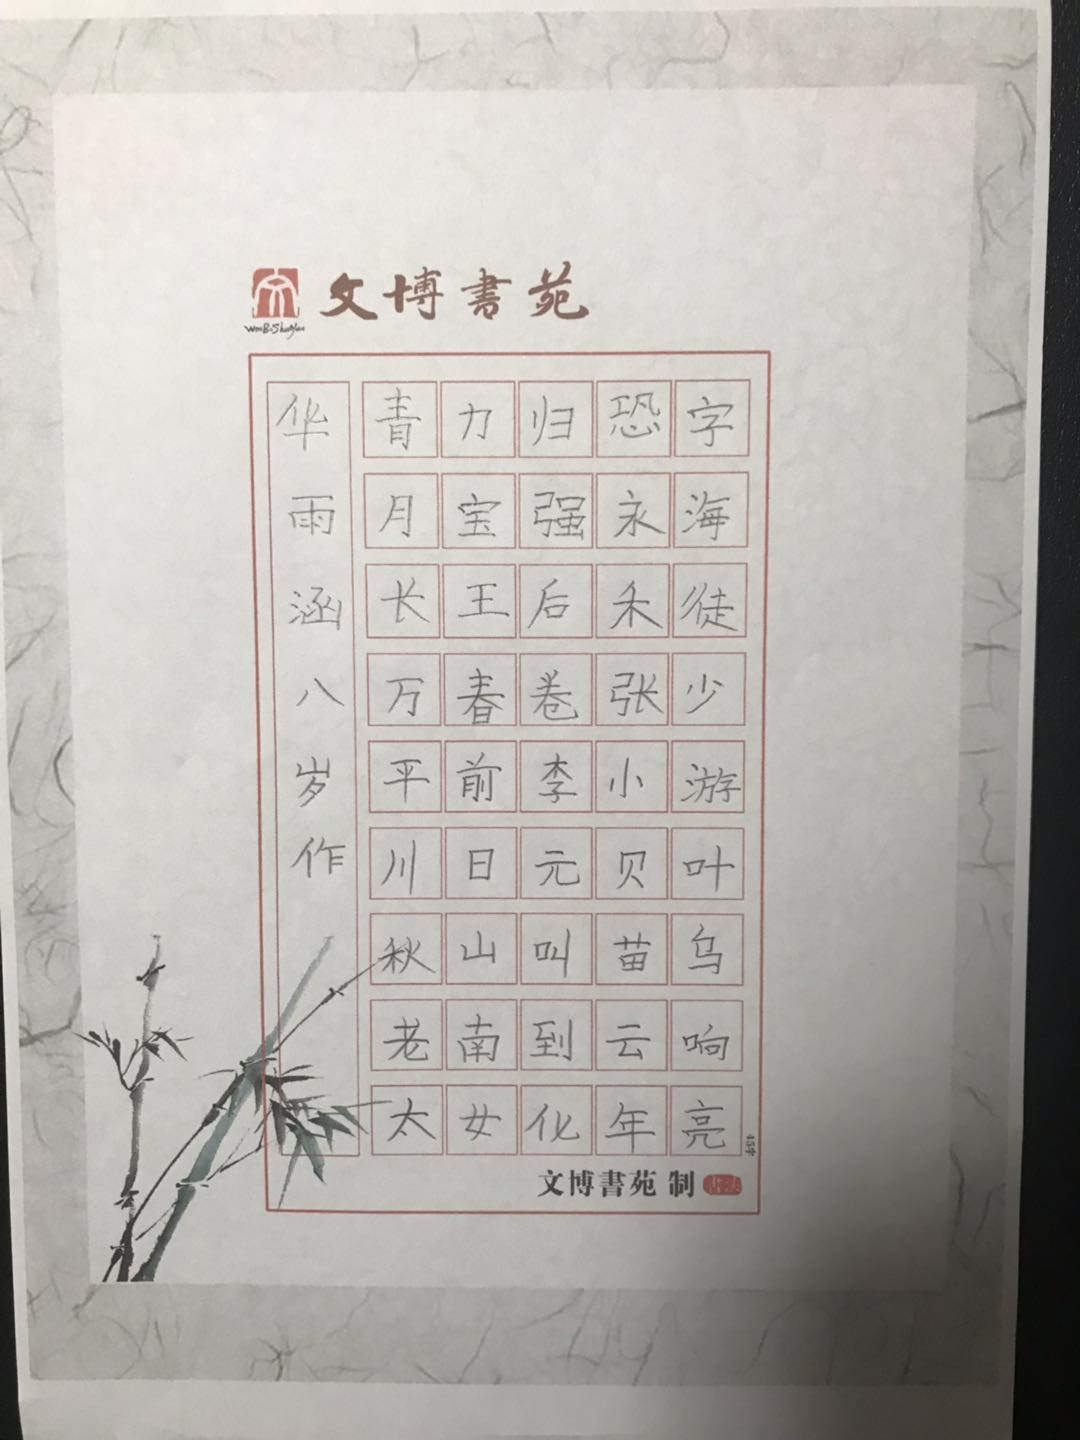 文博書苑
WenBoShuYuan
字海徒少游叶乌响亮
恐永禾张小贝苗云年
归强后卷李元叫到化
力宝王春前日山南女
青月长万平川秋老太
华雨涵八岁作
45字
文博書苑 制